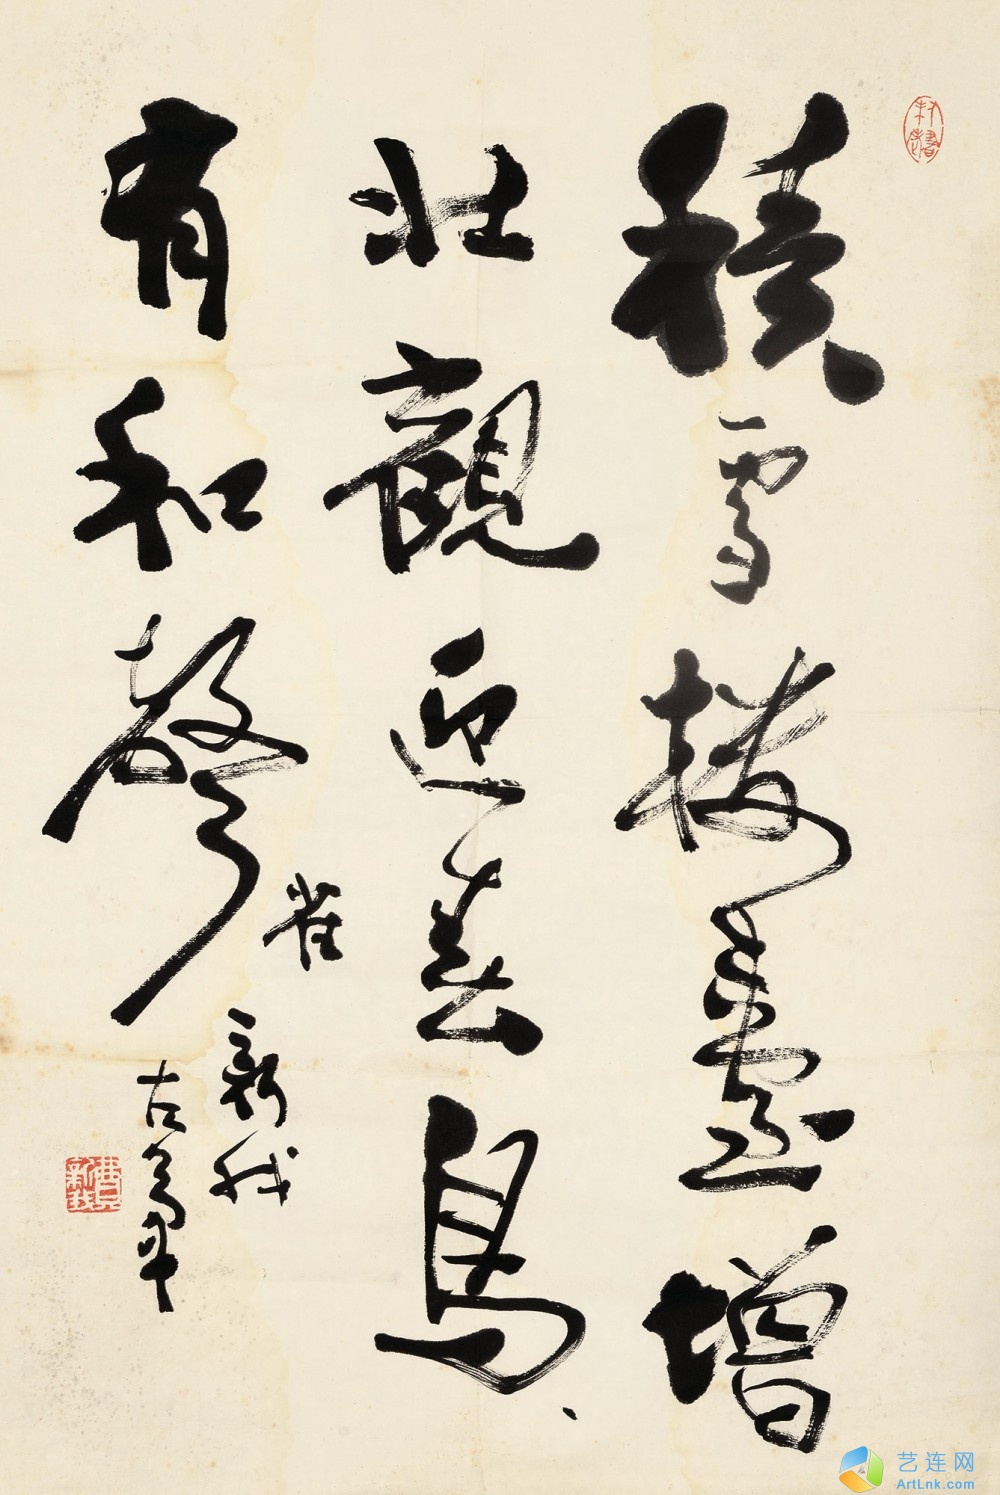 積雪樓臺增
壯觀迎春鳥
有和聲
雀
新我
左筆
費新我
艺连网
ArtLnk.com